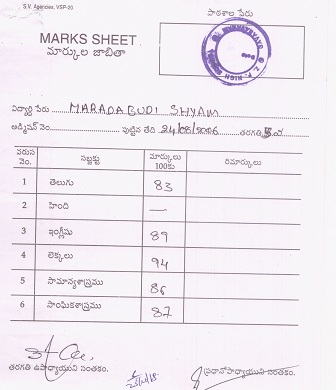 S.V. Agencies, VSP-20
MARKS SHEET
మార్కుల జాబితా
పాఠశాల పేరు
Z. P. HIGH
విద్యార్థి పేరు MARADAGUDI SHYAM
అడ్మిషన్ నెం. పుట్టిన తేది 24/08/2006 తరగతి
వరుస నెం. సబ్జక్టు మార్కులు 100కు రిమార్కులు
1 తెలుగు 83
2 హింది —
3 ఇంగ్లీషు 89
4 లెక్కలు 94
5 సామాన్యశాస్త్రము 86
6 సాంఘికశాస్త్రము 87
తరగతి ఉపాధ్యాయుని సంతకం. ప్రధానోపాధ్యాయుని సంతకం.